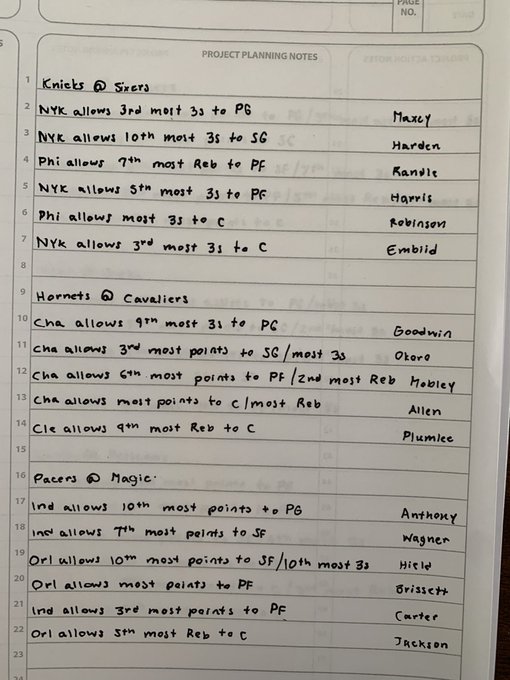 PAGE
NO.
PROJECT PLANNING NOTES
1 Knicks @ Sixers
2 NYK allows 3rd most 3s to PG Maxey
3 NYK allows 10th most 3s to SG Harden
4 Phi allows 7th most Reb to PF Randle
5 NYK allows 5th most 3s to PF Harris
6 Phi allows most 3s to C Robinson
7 NYK allows 3rd most 3s to C Embiid
8
9 Hornets @ Cavaliers
10 Cha allows 9th most 3s to PG Goodwin
11 Cha allows 3rd most points to SG/most 3s Okoro
12 Cha allows 6th most points to PF/2nd most Reb Mobley
13 Cha allows most points to C/most Reb Allen
14 Cle allows 9th most Reb to C Plumlee
15
16 Pacers @ Magic
17 Ind allows 10th most points to PG Anthony
18 Ind allows 7th most points to SF Wagner
19 Orl allows 10th most points to SF/10th most 3s Hield
20 Orl allows most points to PF Brissett
21 Ind allows 3rd most points to PF Carter
22 Orl allows 5th most Reb to C Jackson
23